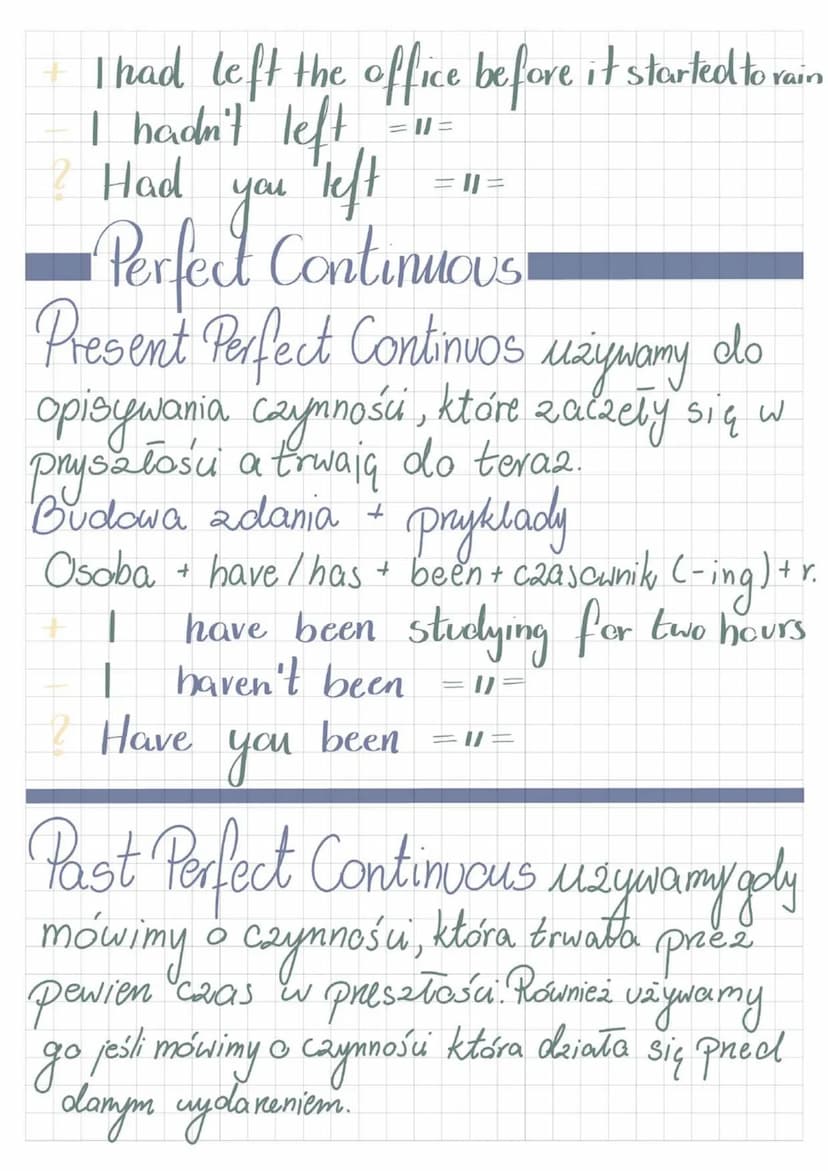 + I had left the office before it started to rain
- I hadn't left =//=
? Had you left =//=
Perfect Continuous
Present Perfect Continuos używamy do
opisywania czynności, które zaczeły się w
pryszłości a trwają do teraz.
Budowa zdania + przyklady
Osoba + have/has + been + czasownik (-ing) + r.
+ I have been studying for two hours
- I haven't been =//=
? Have you been =//=
Past Perfect Continuous używamy gdy
mówimy o czynności, która trwała przez
pewien czas w preszłości. Również używamy
go jeśli mówimy o czynności która działa się przed
danym wydarzeniem.